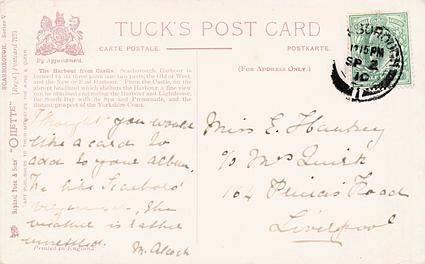 TUCK'S POST CARD
CARTE POSTALE.
POSTKARTE.
By Appointment.
(FOR ADDRESS ONLY.)
The Harbour from Castle. Scarborough Harbour is
formed by its three giant into two parts, the Old of West,
and the New or East Harbour. From the Castle, on the
abrupt headland which shelters the Harbour, a fine view
can be obtained embracing the Harbour and Lighthouse,
the South Bay with its Spa and Promenade, and the
distant prospect of the Yorkshire Coast.
I thought you would
like a card to
add to your album.
We like Scarboro'
the
weather is rather
unsettled.
M. Alcock
Printed in England.
Miss E. Hankey
c/o Mrs Quirk
164 Road
Liverpool
SCARBOROUGH. Series V.
"OILETTE" [Regd.] Postcard 7175
Raphael Tuck & Sons'
ART PUBLISHERS TO THEIR MAJESTIES THE KING & QUEEN
BOROUGH
1115PM
SP 2
10